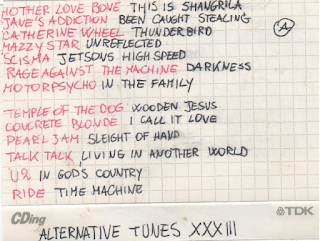 MOTHER LOVE BONE THIS IS SHANGRILA
JANE'S ADDICTION BEEN CAUGHT STEALING
CATHERINE WHEEL THUNDERBIRD
MAZZY STAR UNREFLECTED
SCISMA JETSONS HIGH SPEED
RAGE AGAINST THE MACHINE DARKNESS
MOTORPSYCHO IN THE FAMILY
A
TEMPLE OF THE DOG WOODEN JESUS
CONCRETE BLONDE I CALL IT LOVE
PEARL JAM SLEIGHT OF HAND
TALK TALK LIVING IN ANOTHER WORLD
U2 IN GODS COUNTRY
RIDE TIME MACHINE
CDing TDK
ALTERNATIVE TUNES XXXIII